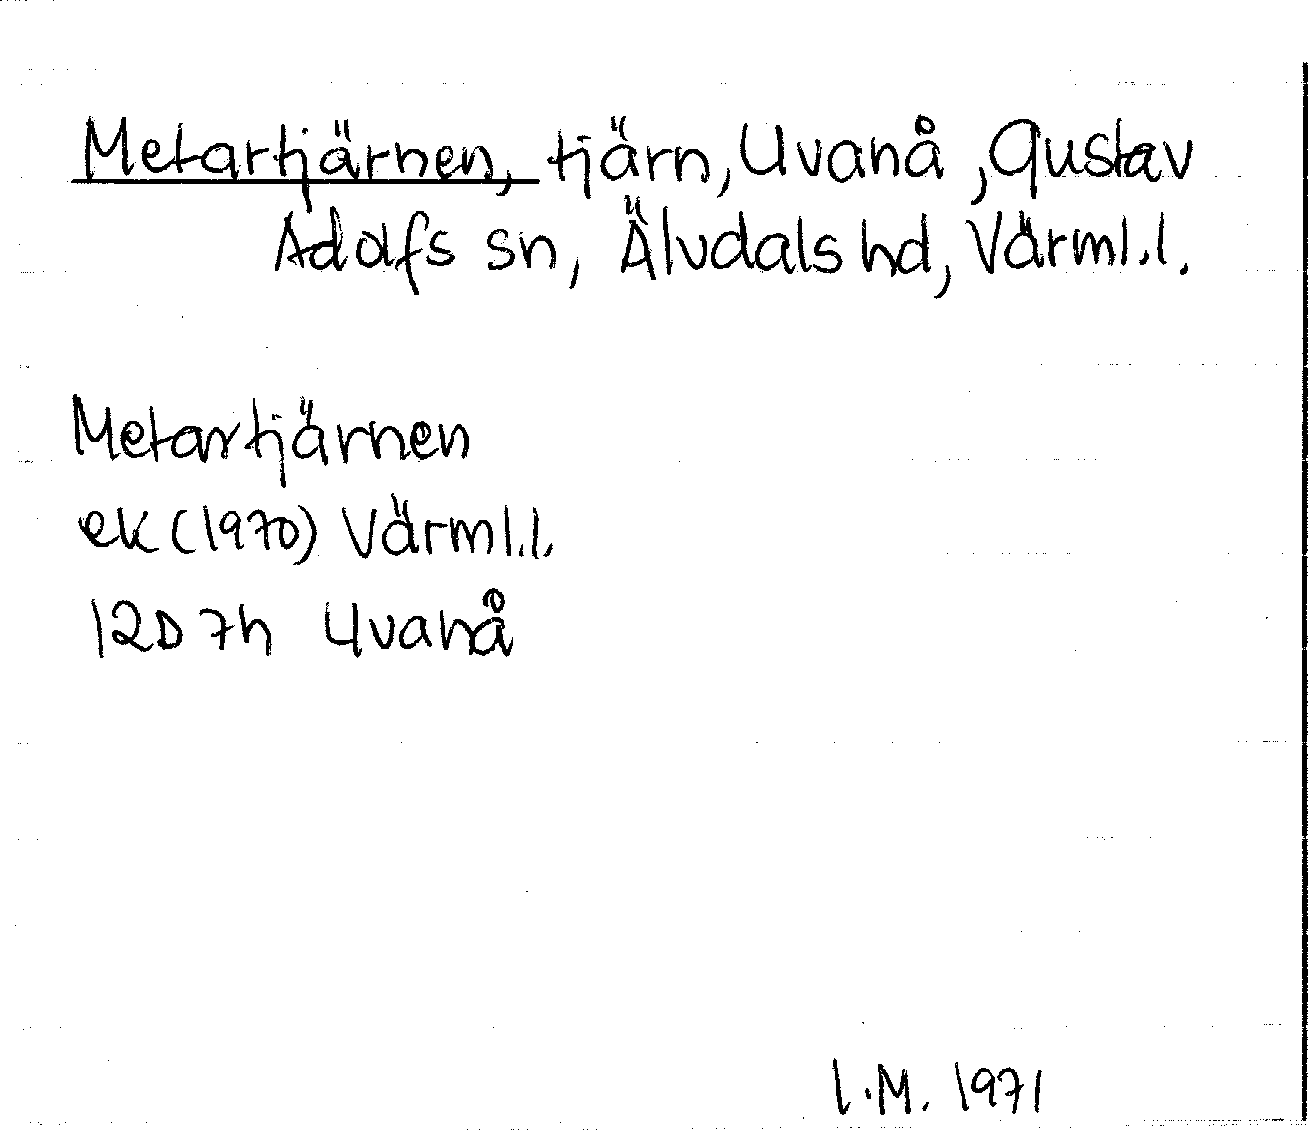 Metartjärnen, tjärn, Uvanå, Gustav
Adolfs sn, Älvdals hd, Värml.l.
Metartjärnen
ek (1970) Värml.l.
12D 7h Uvanå
l.M. 1971